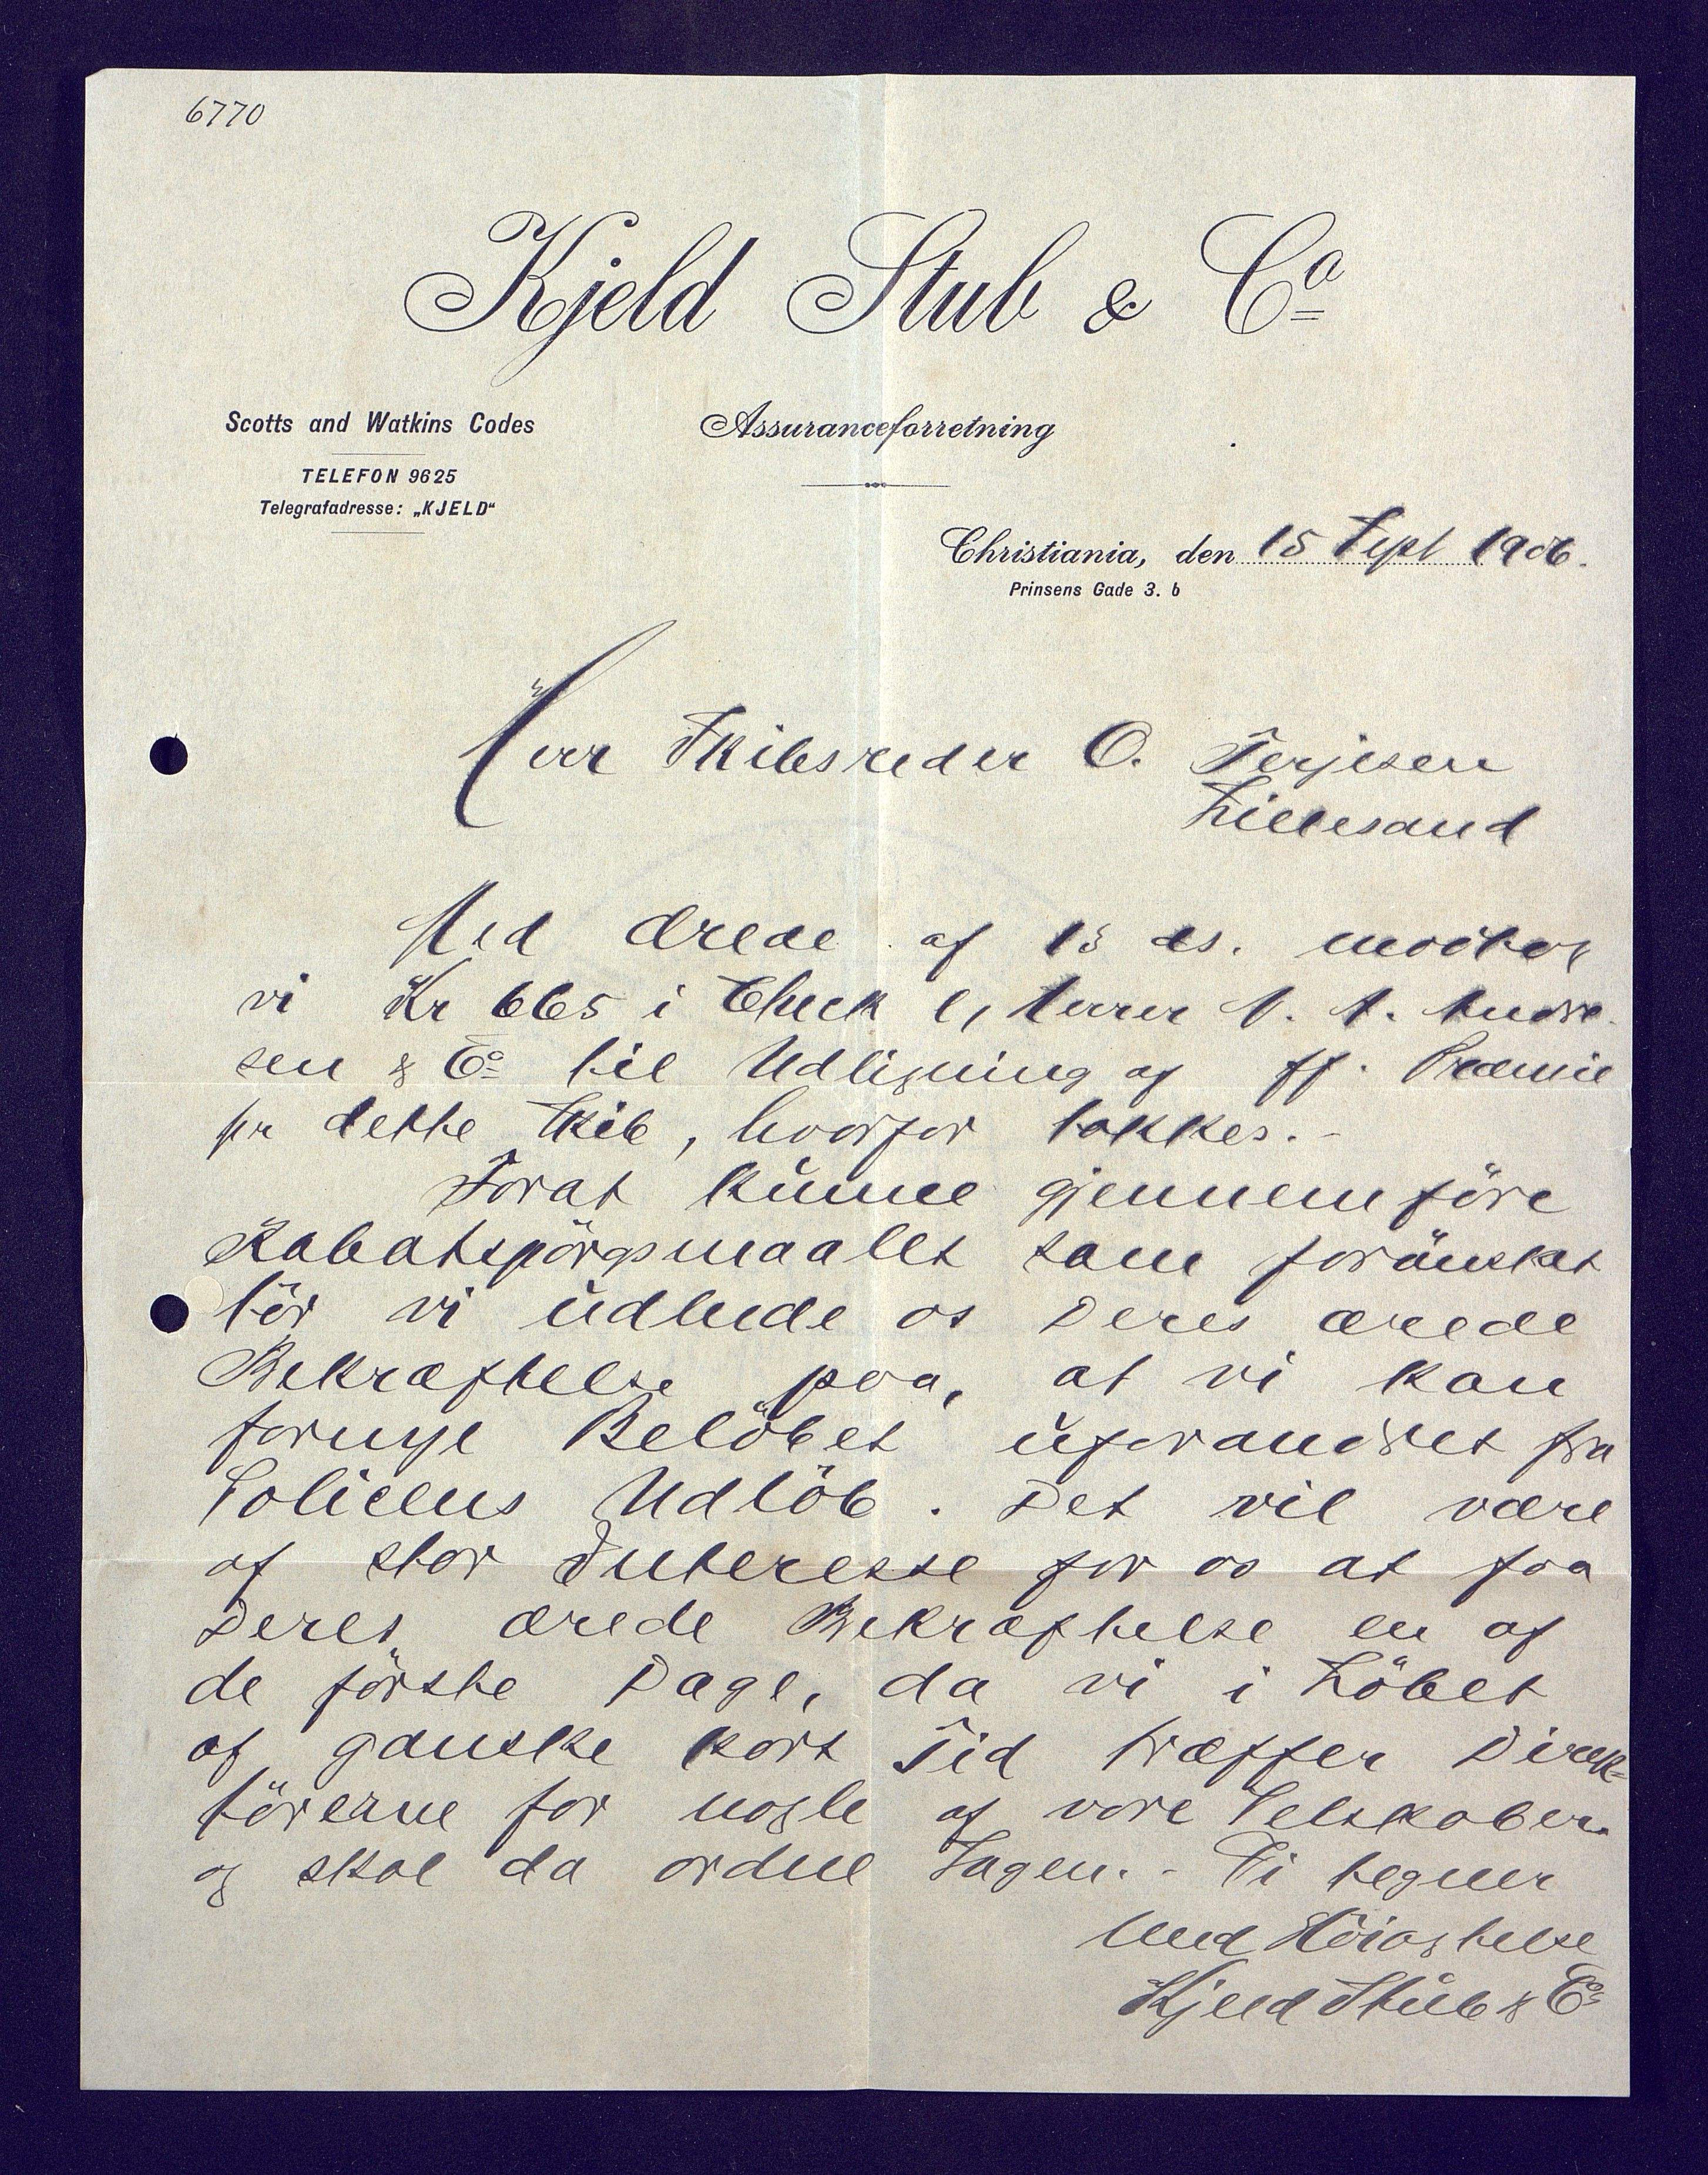 6770
Kjeld Stub & Co
Scotts and Watkins Codes
Assuranceforretning
TELEFON 9625
Telegrafadresse: „KJELD“
Christiania, den 15 Sept 1906.
Prinsens Gade 3. b
Herr Skibsreder O. Terjesen
Lillesand
Med ærede af 13 ds. modtog
vi Kr 665 i Check Herrer N. A. Andre-
sen & Co til Udligning af ff. Præmie
pr dette Skib, hvorfor takkes.-
Forat kunne gjennemföre
Rabatspörgsmaalet som forönsket
tör vi udbede os Deres ærede
Bekræftelse paa, at vi kan
fornye Belöbet uforandret fra
Policens Udlöb. Det vil være
af stor Interesse for os at faa
Deres ærede Bekræftelse en af
de förste Dage, da vi i Löbet
af ganske kort Tid træffer Direk-
törerne for nogle af vore Selskaber
og skal da ordne Sagen. - Vi tegner
Med Höiagtelse
Kjeld Stub & Co